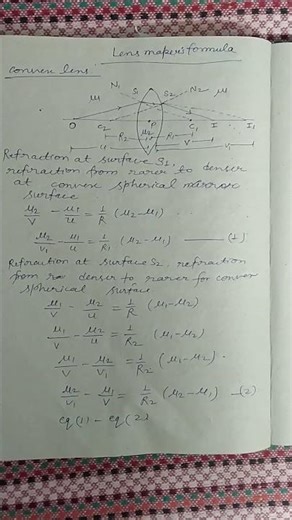 Lens maker's formula
convex lens
μ1 N1 S1 S2 N2 μ1
O C2 P C1 I I1
μ2
R2 R1 V
u V1
Refraction at surface S2,
refraction from rarer to denser
at convex spherical mirror
surface
μ2/V - μ1/u = 1/R (μ2-μ1)
μ2/V1 - μ1/u = 1/R1 (μ2-μ1) —— (1)
Refraction at surface S2, refraction
from ra denser to rarer for convex
spherical surface
μ1/V - μ2/u = 1/R (μ1-μ2)
μ1/V - μ2/u = 1/R2 (μ1-μ2)
μ1/V - μ2/V1 = 1/R2 (μ1-μ2).
μ2/V1 - μ1/V = 1/R2 (μ2-μ1) —(2)
eq (1) - eq (2)